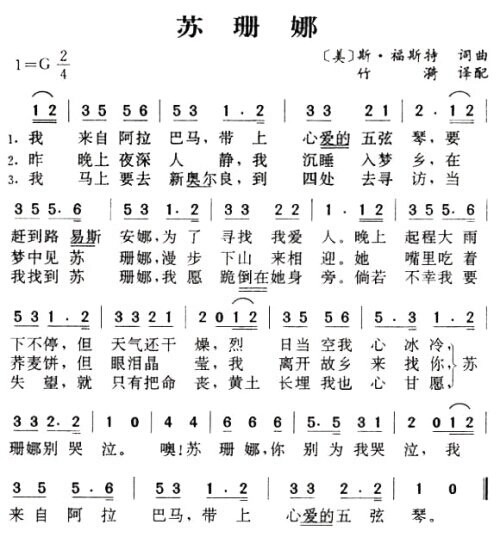 苏珊娜
〔美〕斯·福斯特 词曲
1=G 2/4
竹漪 译配
1 2 | 3 5 5 6 | 5 3 1. 2 | 3 3 2 1 | 2. 1 2 |
1. 我 来自阿拉 巴马,带上 心爱的五弦 琴,要
2. 昨 晚上夜深 人静,我 沉睡入梦 乡,在
3. 我 马上要去 新奥尔良,到 四处去寻 访,当
3 5 5. 6 | 5 3 1. 2 | 3 3 2 2 | 1. 1 2 | 3 5 5. 6 |
赶到路易斯 安娜,为了 寻找我爱 人。晚上 起程大雨
梦中见苏 珊娜,漫步 下山来相 迎。她 嘴里吃着
我找到苏 珊娜,我愿 跪倒在她身 旁。倘若 不幸我要
5 3 1. 2 | 3 3 2 2 1 | 2 0 1 2 | 3 5 5. 6 | 5 3 1. 2 |
下不停,但 天气还干 燥,烈 日当空我 心冰冷,
荞麦饼,但 眼泪晶 莹,我 离开故乡 来找你,苏
失望,就 只有把命 丧,黄土 长埋我也 心甘愿,
3 3 2. 2 | 1 0 | 4 4 | 6 6 6 | 5. 5 3 1 | 2 0 1 2 |
珊娜别哭 泣。 噢!苏 珊娜,你 别为我哭 泣,我
3 5 5. 6 | 5 3 1. 2 | 3 3 2. 2 | 1 0 ‖
来自阿拉 巴马,带上 心爱的五弦 琴。